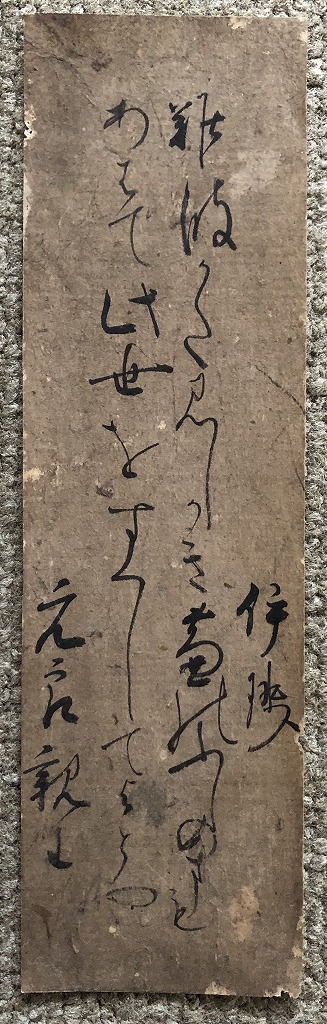 伊勢
難波かたみしかき芦のふしのまも
あはて此世をすくしてよとや
元良親王